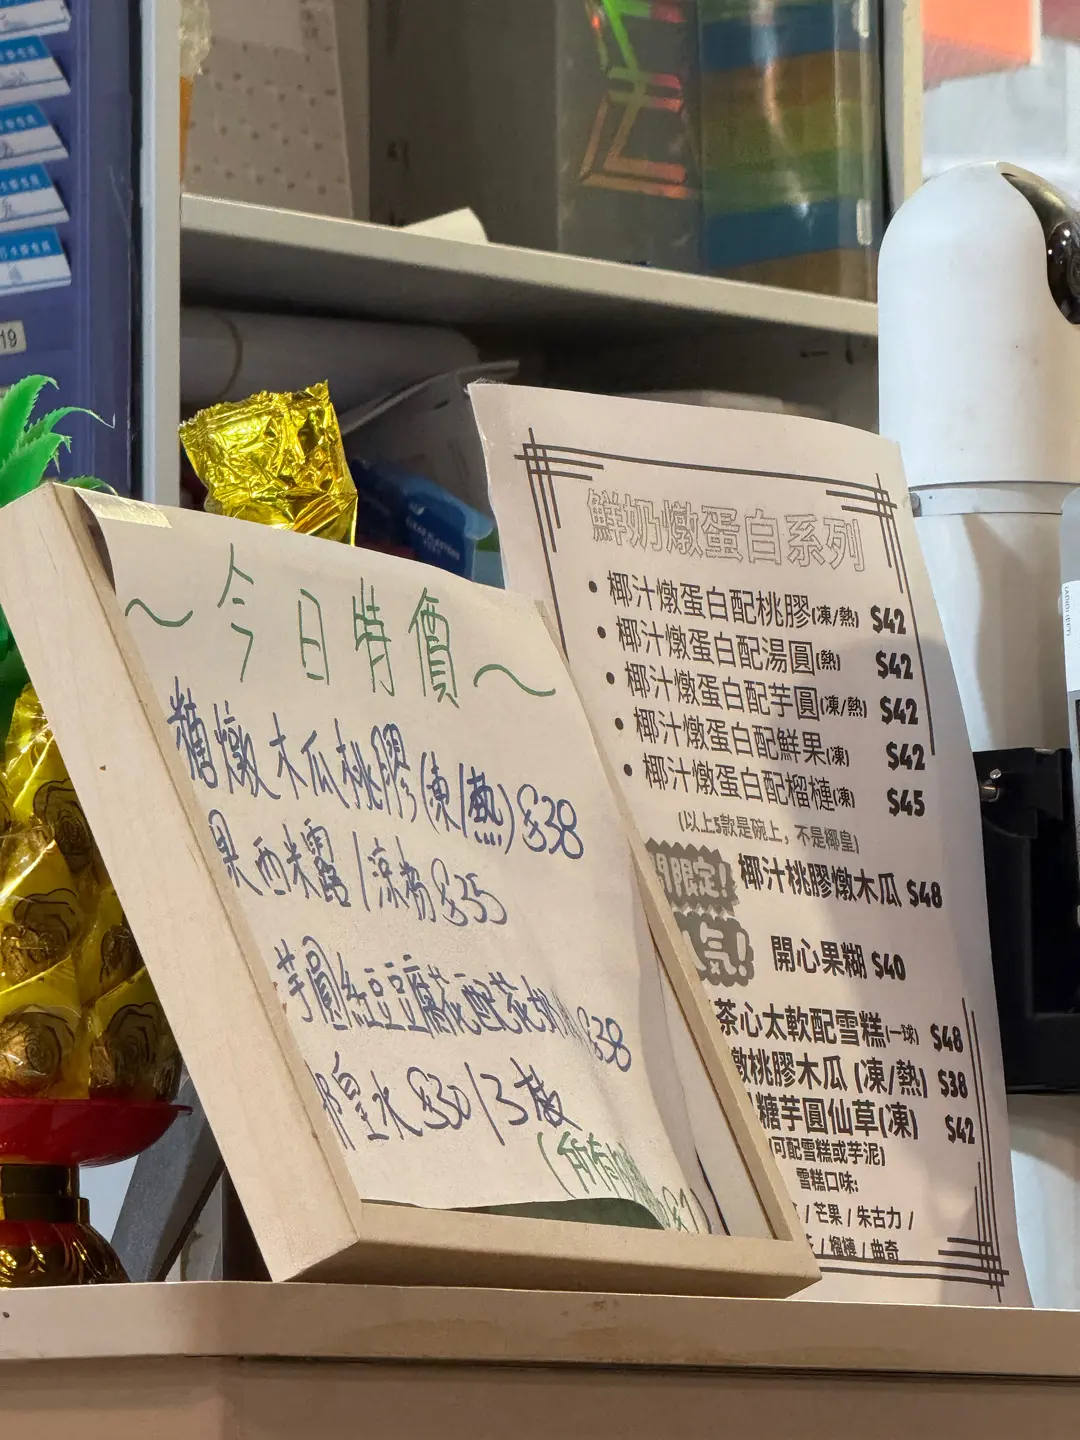 19
～今日特價～
燉木瓜桃膠(凍/熱)$38
果西米露/涼粉$35
芋圓紅豆豆腐花配花奶$38
皇水$30/
鮮奶燉蛋白系列
• 椰汁燉蛋白配桃膠(凍/熱) $42
• 椰汁燉蛋白配湯圓(熱) $42
• 椰汁燉蛋白配芋圓(凍/熱) $42
• 椰汁燉蛋白配鮮果(凍) $42
• 椰汁燉蛋白配榴槤(凍) $45
(以上5款是碗上，不是椰皇)
限定! 椰汁桃膠燉木瓜 $48
氣! 開心果糊 $40
茶心太軟配雪糕(一球) $48
燉桃膠木瓜 (凍/熱) $38
糖芋圓仙草(凍) $42
可配雪糕或芋泥)
雪糕口味:
/ 芒果 / 朱古力 /
/ 榴槤 / 曲奇